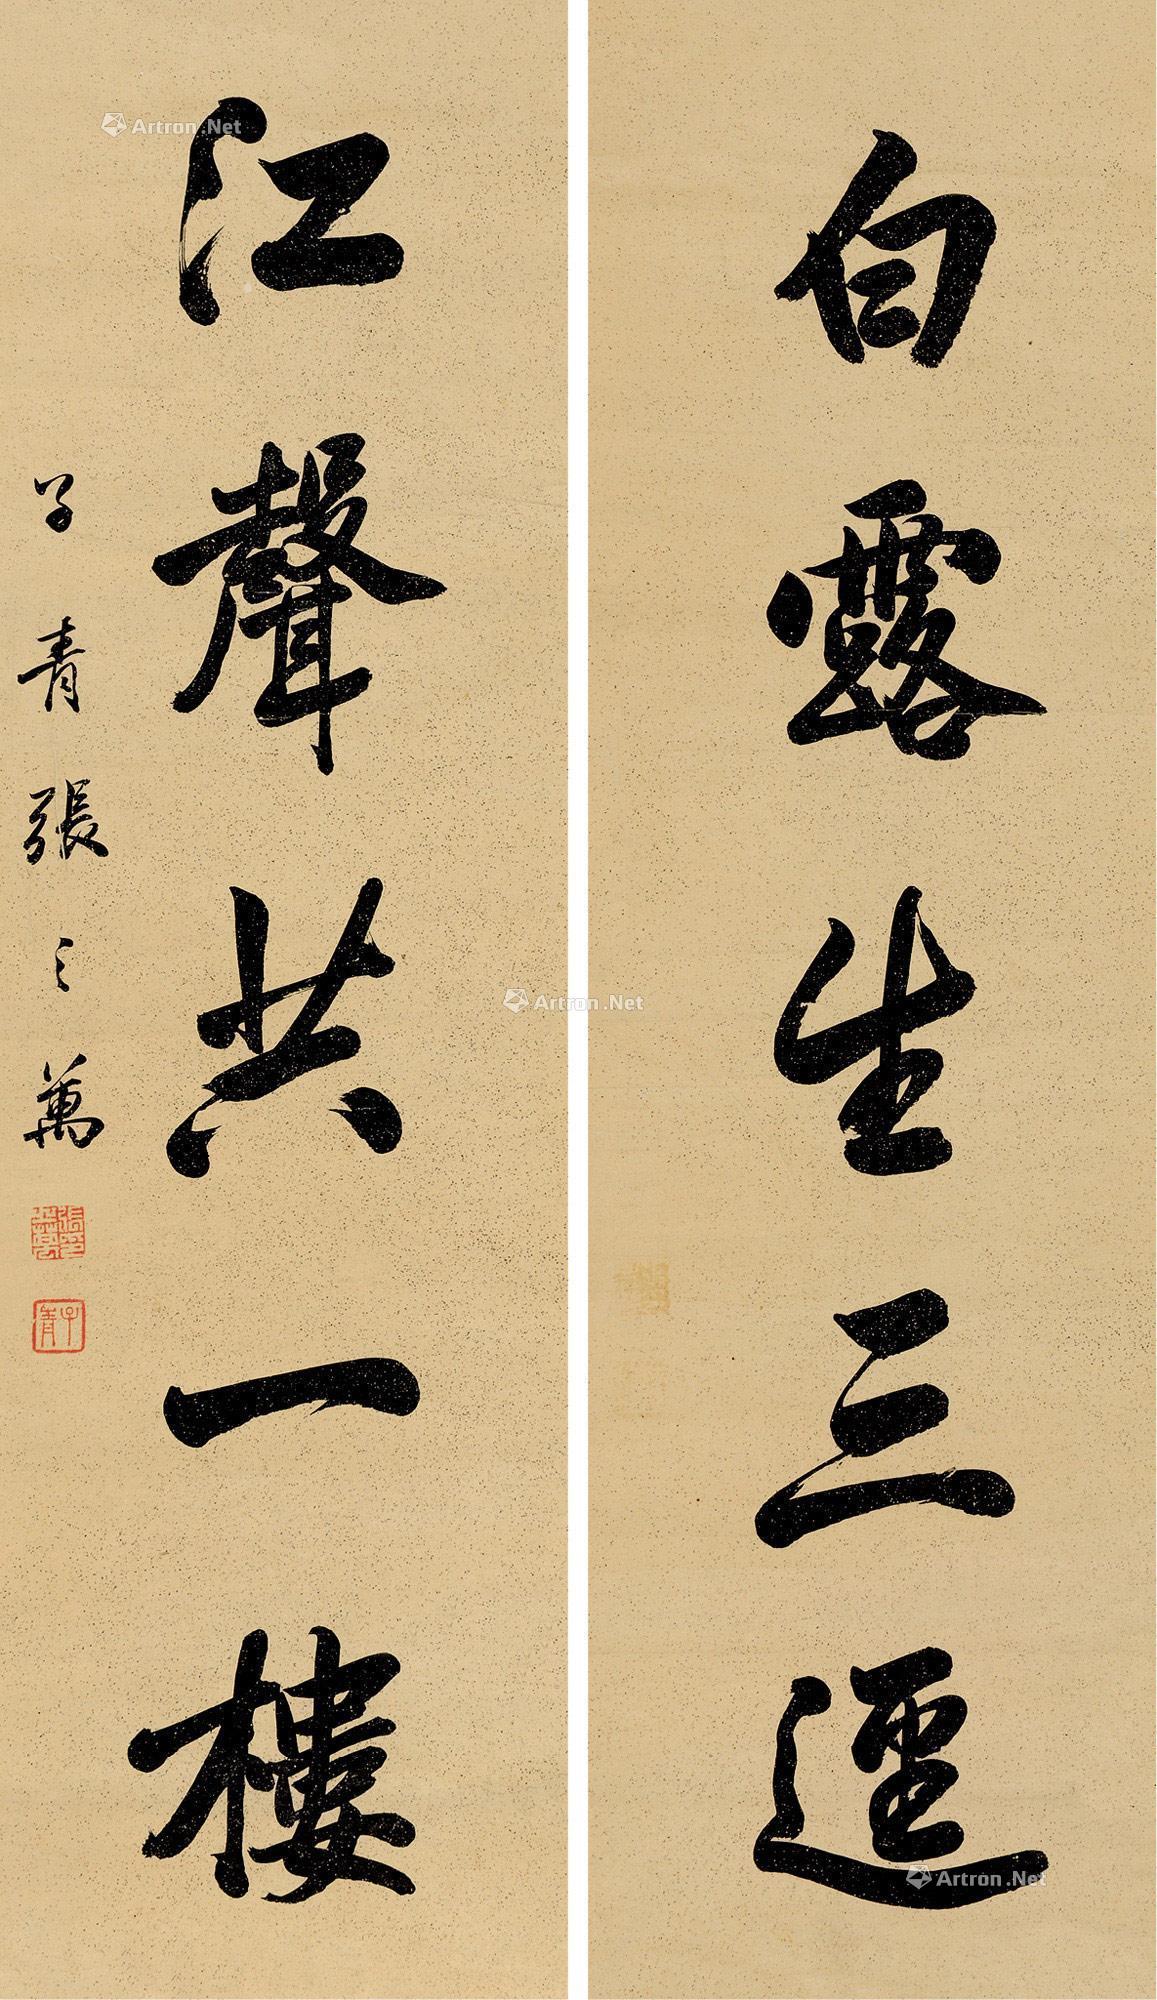 白露生三逕
江聲共一樓
子青張之萬
張之萬印
子青
Artron.Net
Artron.Net
Artron.Net